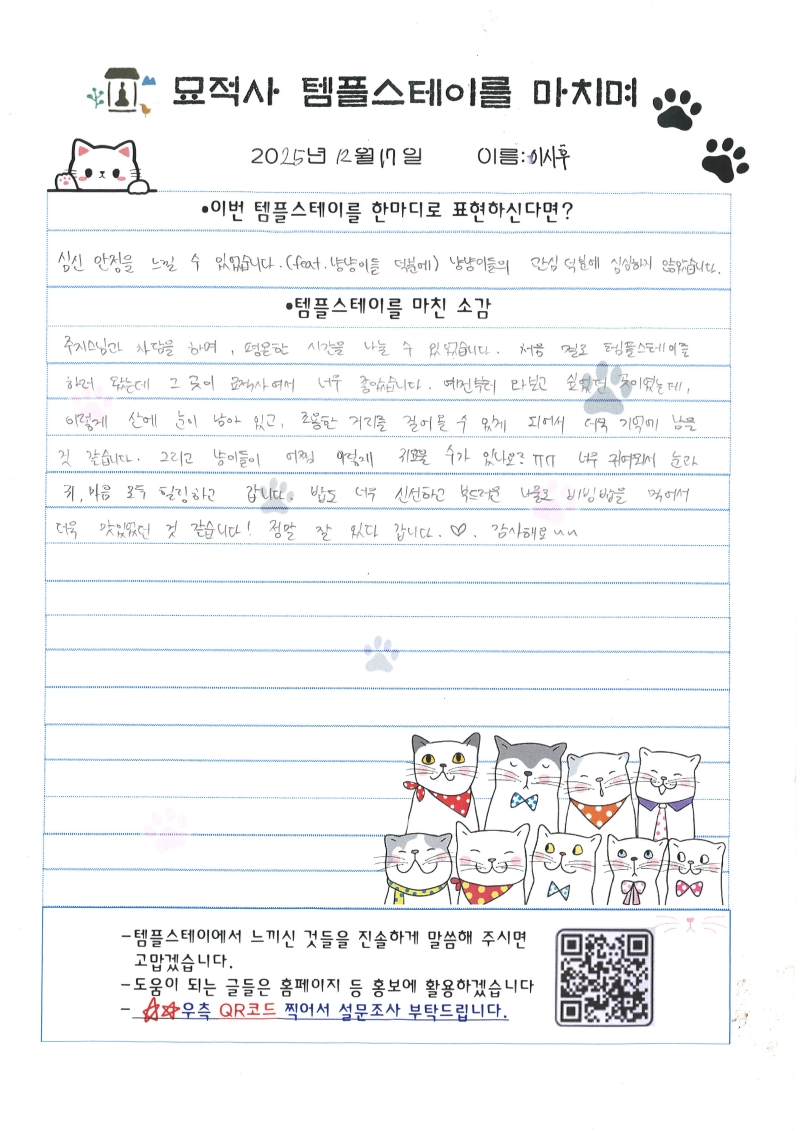 묘적사 템플스테이를 마치며
2025년 12월 17일 이름: 이시후
•이번 템플스테이를 한마디로 표현하신다면?
심신 안정을 느낄 수 있었습니다. (feat. 냥냥이들 덕분에) 냥냥이들의 관심 덕분에 심심하지 않았습니다.
•템플스테이를 마친 소감
주지스님과 차담을 하며, 평온한 시간을 나눌 수 있었습니다. 처음 절로 템플스테이를
하러 왔는데 그 곳이 묘적사여서 너무 좋았습니다. 예전부터 와보고 싶었던 곳이었는데,
이렇게 산에 눈이 남아 있고, 조용한 거리를 걸어볼 수 있게 되어서 더욱 기억에 남을
것 같습니다. 그리고 냥이들이 어쩜 이렇게 귀여울 수가 있나요? ㅠㅠ 너무 귀여워서 눈과
귀, 마음 모두 힐링하고 갑니다. 밥도 너무 신선하고 부드러운 나물로 비빔밥을 먹어서
더욱 맛있었던 것 같습니다! 정말 잘 있다 갑니다. ♡. 감사해요 ^^
-템플스테이에서 느끼신 것들을 진솔하게 말씀해 주시면
고맙겠습니다.
-도움이 되는 글들은 홈페이지 등 홍보에 활용하겠습니다
- ☆☆우측 QR코드 찍어서 설문조사 부탁드립니다.